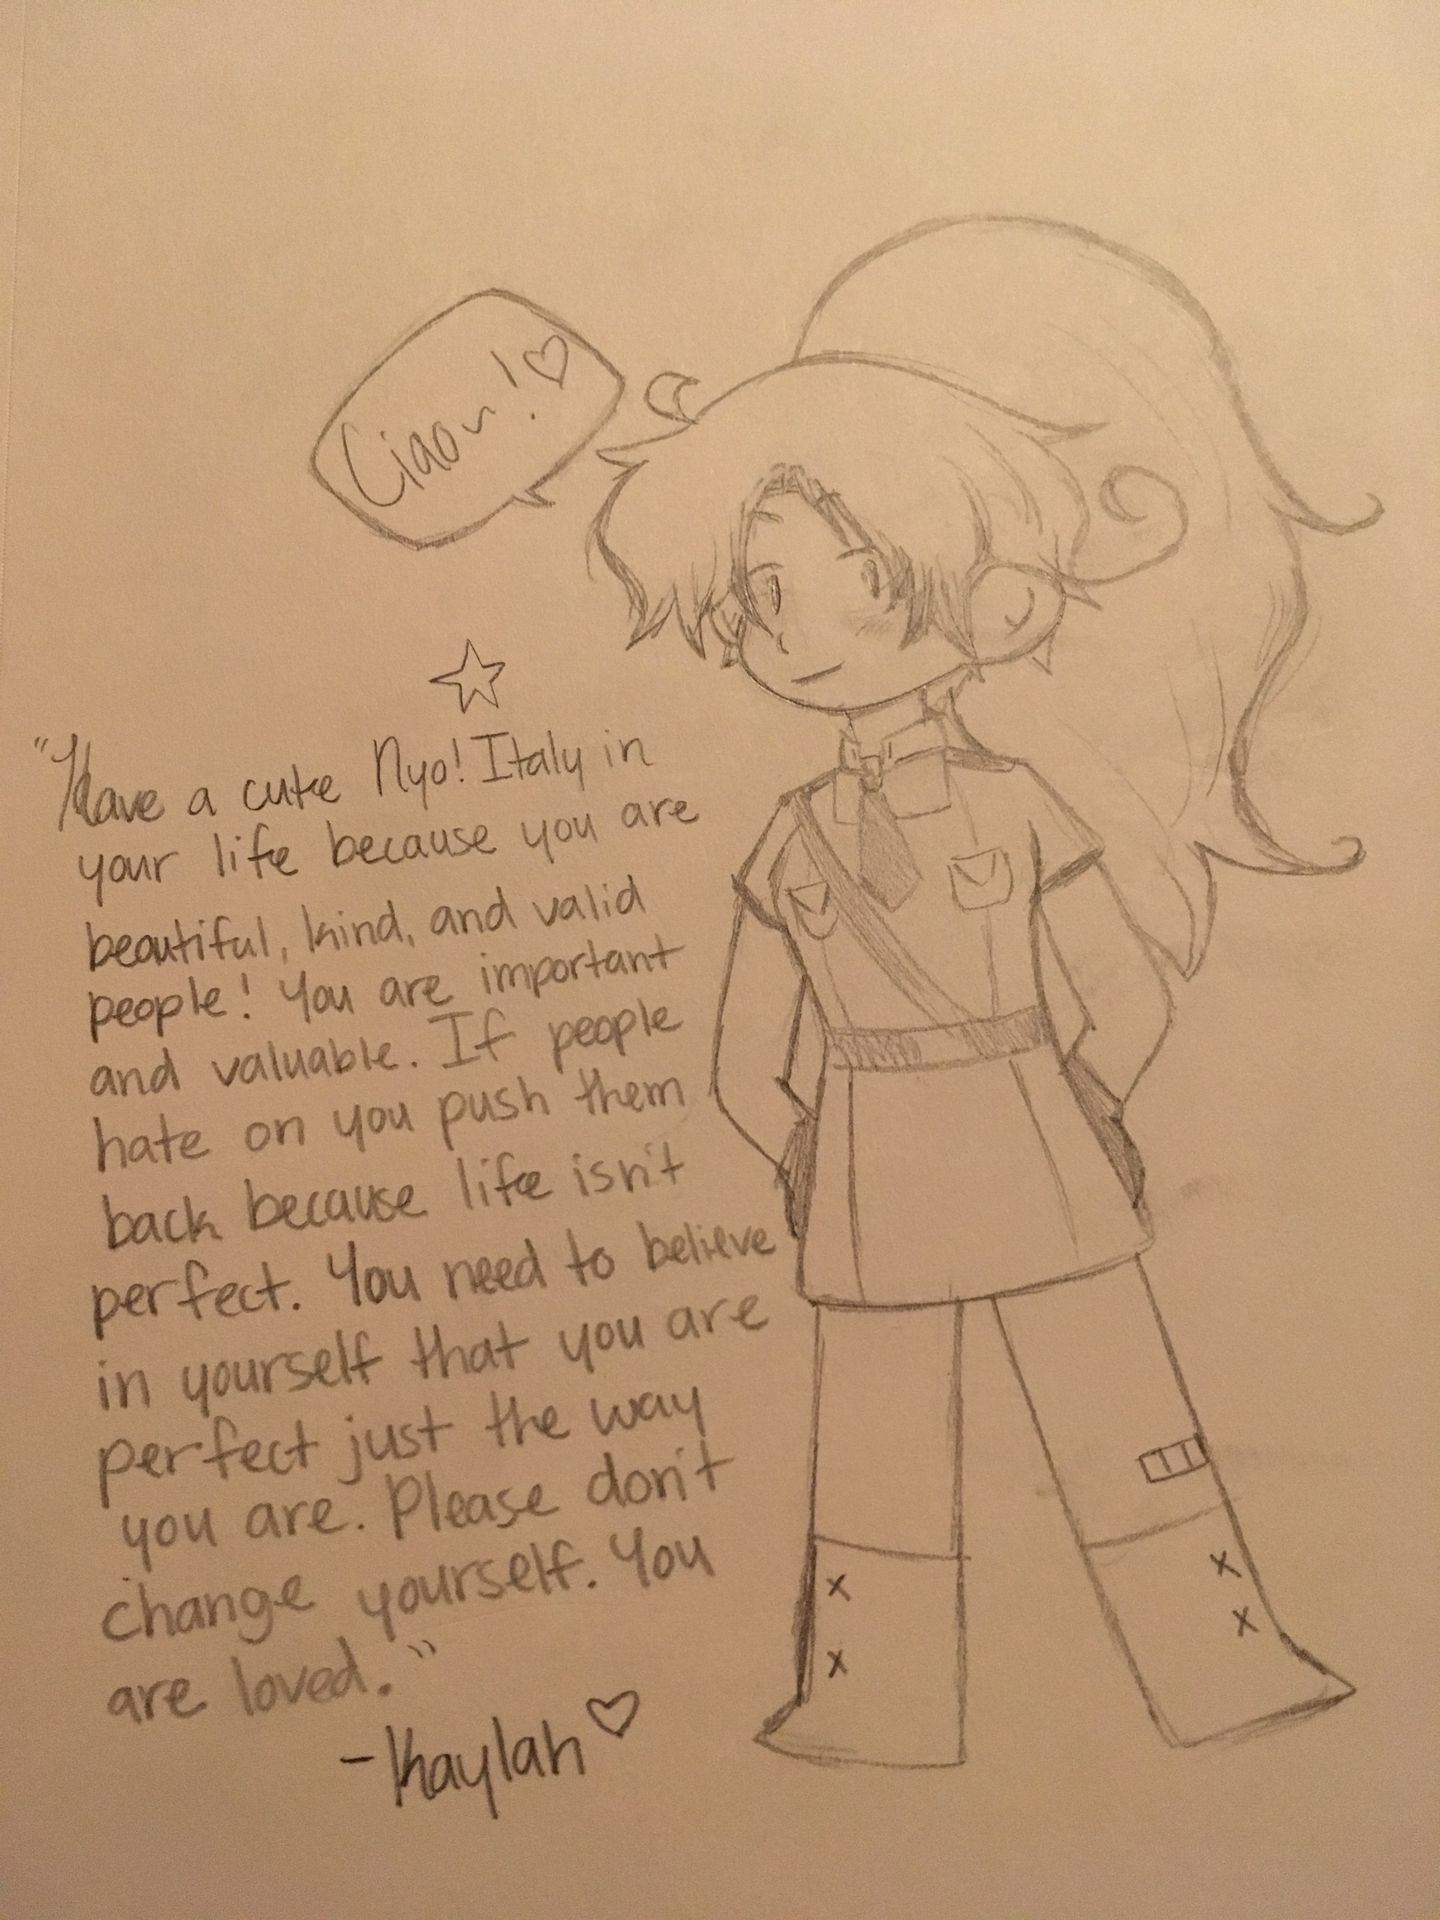 Ciao~!♡
☆
"Have a cute Nyo! Italy in
your life because you are
beautiful, kind, and valid
people! You are important
and valuable. If people
hate on you push them
back because life isn't
perfect. You need to believe
in yourself that you are
perfect just the way
you are. Please don't
change yourself. You
are loved."
-Kaylah♡